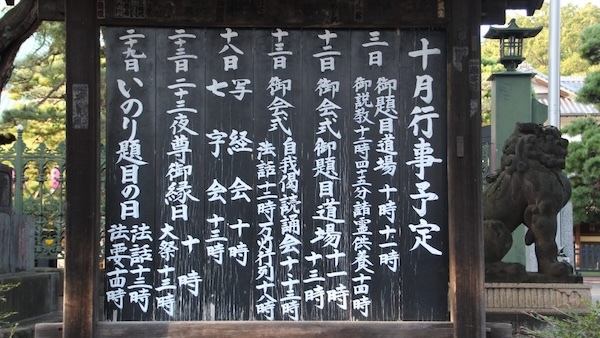 十月行事予定
三日 御題目道場 十時 十一時
御説教十二時四十五分 諸霊供養 二時
十二日 御会式御題目道場 十一時
十三時
十三日 御会式 自我偈読誦会 十・十三時
法話十二時 万灯行列十八時
十八日 写経会 十時
七字会 十三時
二十三日 二十三夜尊御縁日 十時
大祭 十三時
二十九日 いのり題目の日 法話十三時
法要十四時